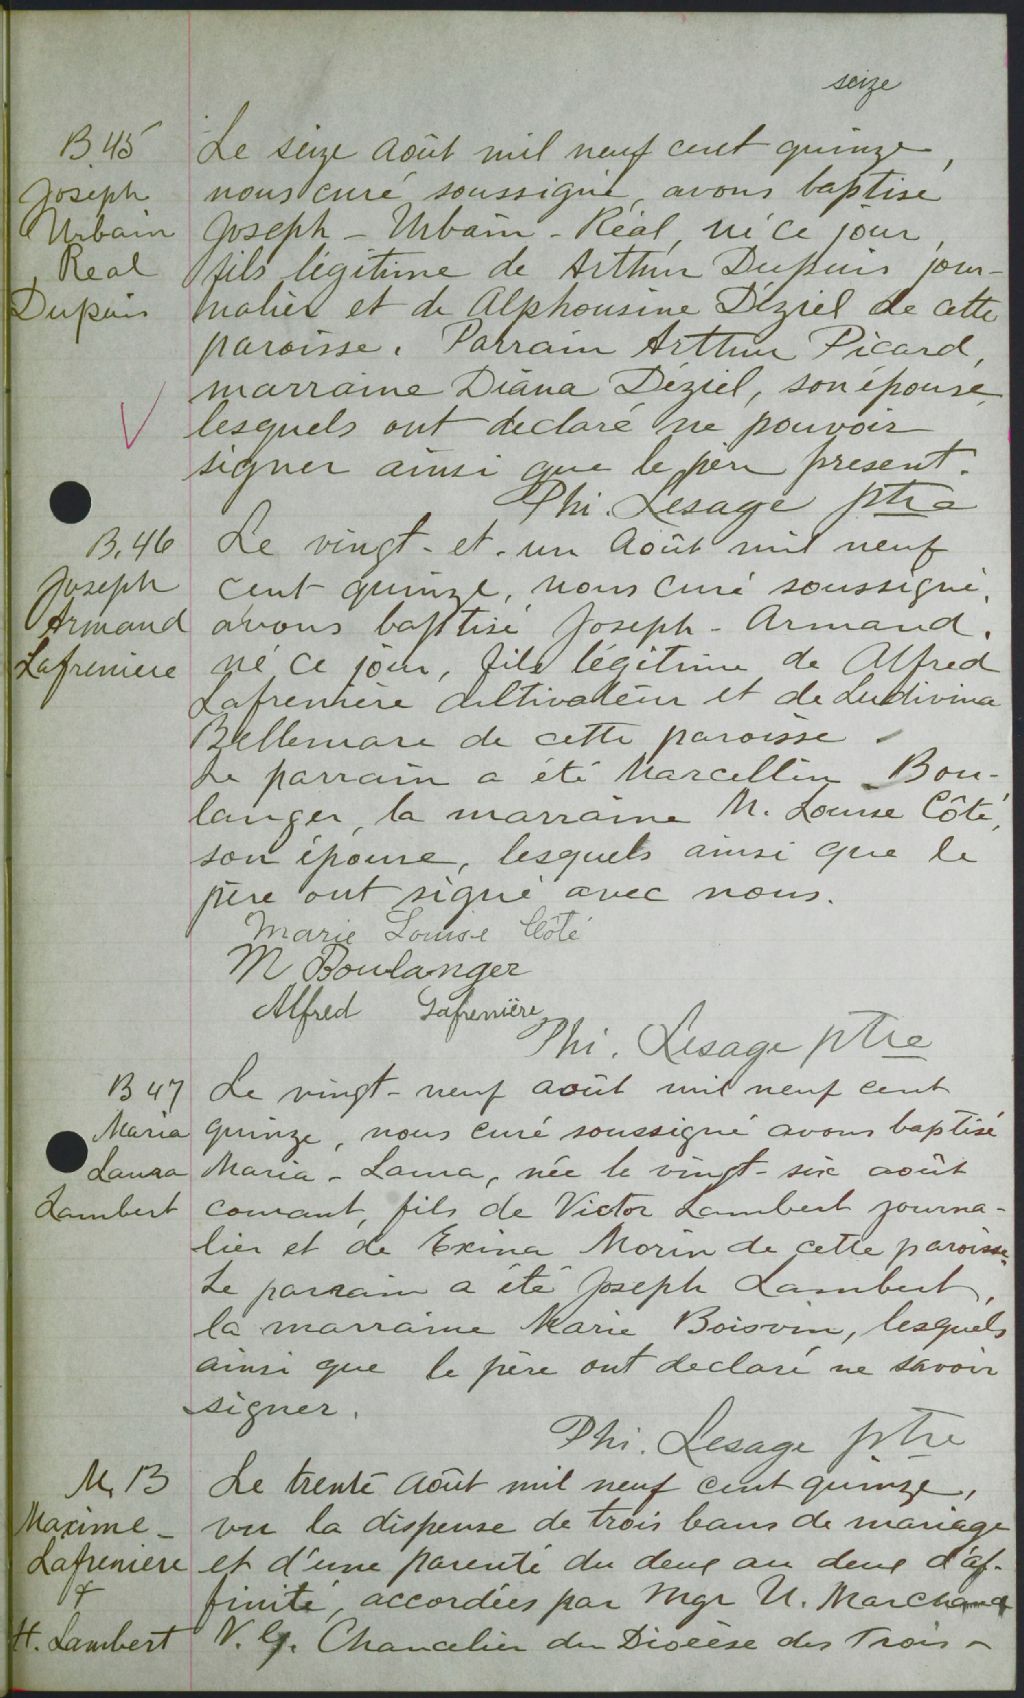 seize
B. 45
Joseph
Urbain
Real
Dupuis
Le seize août mil neuf cent quinze,
nous curé soussigné, avons baptisé
Joseph - Urbain - Réal, né ce jour,
fils légitime de Arthur Dupuis jour-
nalier et de Alphonsine Déziel de cette
paroisse. Parrain Arthur Picard,
marraine Diana Déziel, son épouse,
lesquels ont declaré ne pouvoir
signer ainsi que le père present.
Phi. Lesage ptre
B. 46
Joseph
Armand
Lafreniere
Le vingt-et-un Août mil neuf
cent quinze, nous curé soussigné,
avons baptisé Joseph - Armand,
né ce jour, fils légitime de Alfred
Lafrenière cultivateur et de Ludivina
Bellemare de cette paroisse.
Le parrain a été Marcellin Bou-
langer, la marraine M. Louise Côté,
son épouse, lesquels ainsi que le
père ont signé avec nous.
Marie Louise Côté
M Boulanger
Alfred Lafrenière
Phi. Lesage ptre
B 47
Maria
Laura
Lambert
Le vingt-neuf août mil neuf cent
quinze, nous curé soussigné avons baptisé
Maria - Laura, née le vingt-six août
courant, fils de Victor Lambert journa-
lier et de Exina Morin de cette paroisse.
Le parrain a été Joseph Lambert,
la marraine Marie Boisvin, lesquels
ainsi que le père ont declaré ne savoir
signer.
Phi. Lesage ptre
M. 13
Maxime -
Lafreniere
&
H. Lambert
Le trente Août mil neuf cent quinze,
vu la dispense de trois bans de mariage
et d'une parenté du deux au deux d'af-
finité, accordées par Mgr U. Marchand
V. G. Chancelier du Diocèse des Trois -